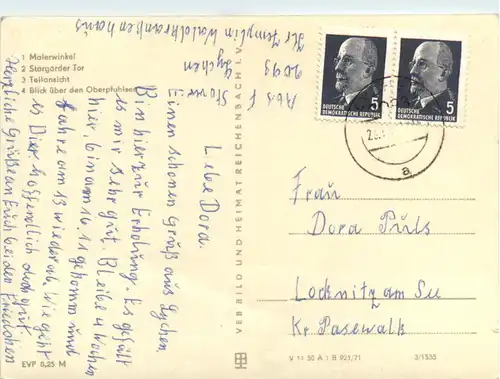 1 Malerwinkel
2 Stargarder Tor
3 Teilansicht
4 Blick über den Oberpfuhlsee
Lebe Dora.
Einen schönen Gruß aus Lychen
Bin hier zur Erholung. Es gefällt
es mir sehr gut. Bleibe 4 Wochen
hier bin am 16.11 gekomm und
fahre am 13 wieder ab. Wie geht
es Dir hoffentlich doch gut
Herzliche Grüße an Euch beiden
Abs
2093
Lychen
Kr Templin Waldkrankenhaus
VEB BILD UND HEIMAT REICHENBACH I. V.
DEUTSCHE
DEMOKRATISCHE REPUBLIK
5
DEUTSCHE
DEMOKRATISCHE REPUBLIK
5
a
Frau
Dora Puls
Locknitz am See
Kr Pasewalk
EVP 0,25 M
V 11 50 A 1 B 921/71
3/1535